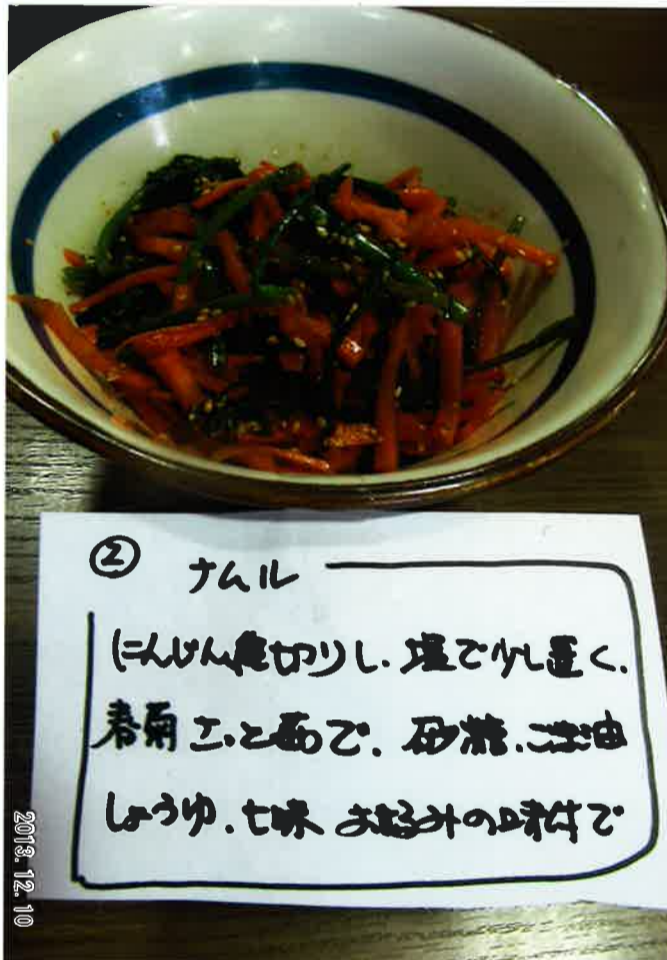 ② ナムル
にんじん千切りし、塩で少し置く、
春菊 さっと茹で、砂糖、ごま油
しょうゆ、七味 お好みの味付で
2013.12.10